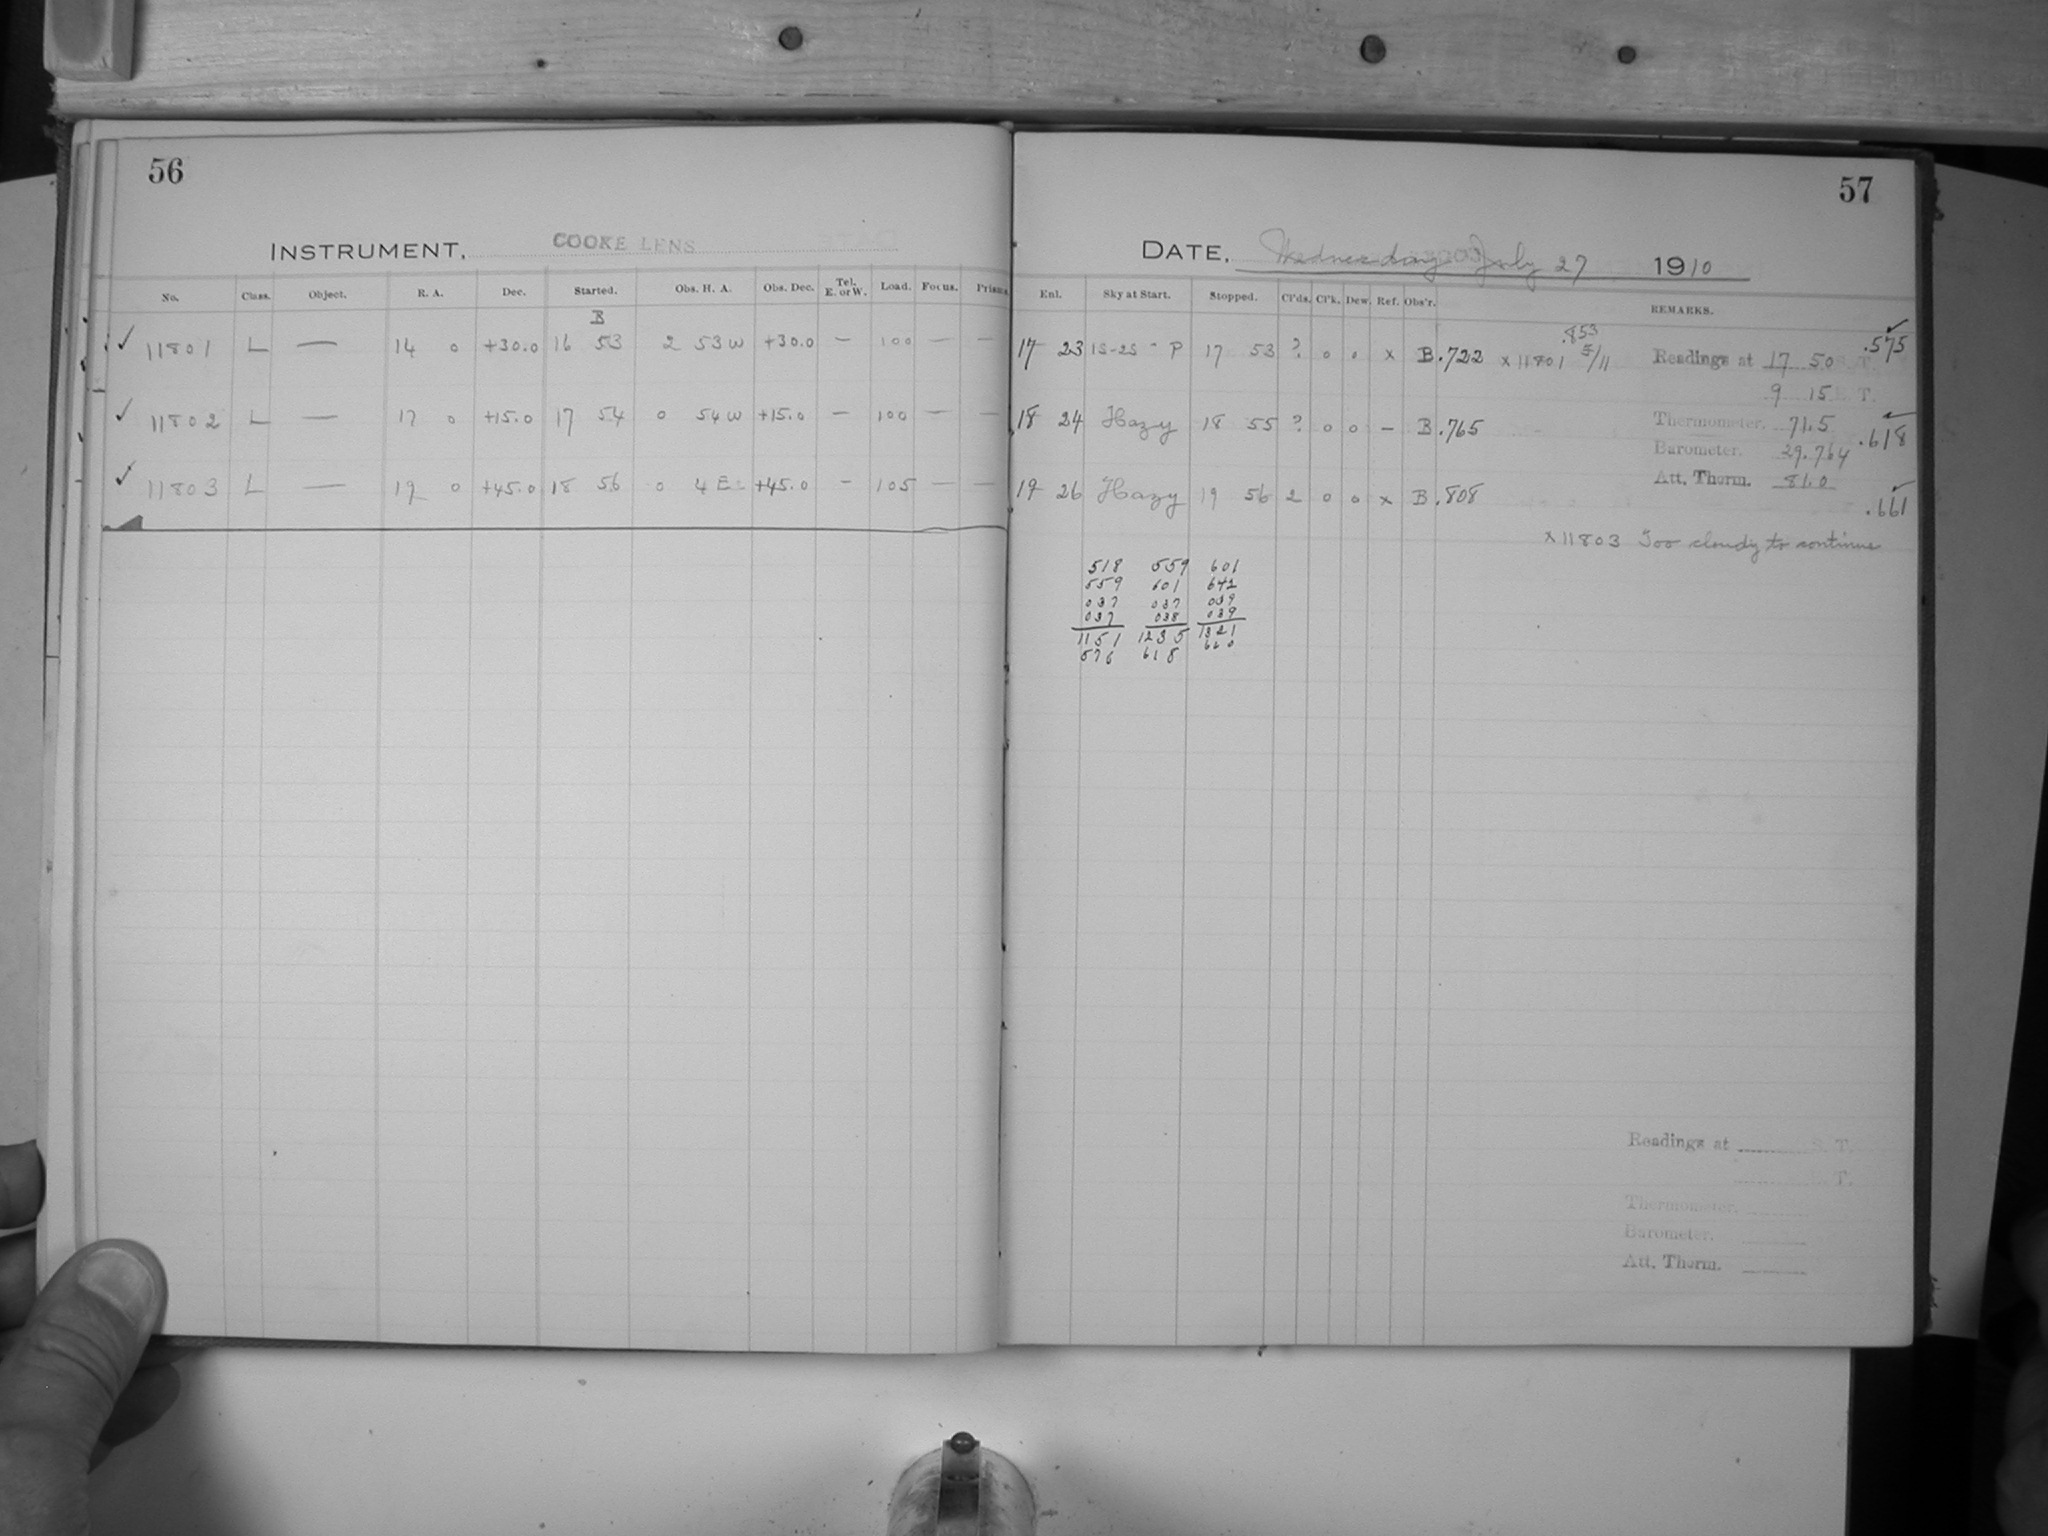 56
INSTRUMENT, COOKE LENS
No. Class. Object. R. A. Dec. Started. Obs. H. A. Obs. Dec. Tel. E. or W. Load. Focus. Prisms.
B
✓ 11801 L — 14 0 +30.0 16 53 2 53 W +30.0 — 100 — —
✓ 11802 L — 17 0 +15.0 17 54 0 54 W +15.0 — 100 — —
✓ 11803 L — 19 0 +45.0 18 56 0 4 E +45.0 — 105 — —
57
DATE, Wednesday July 27 1910
Enl. Sky at Start. Stopped. Cl'ds. Cl'k. Dew. Ref. Obs'r. REMARKS.
17 23 1S-2S - P 17 53 ? 0 0 x B .722 x 11801 .853
18 24 Hazy 18 55 ? 0 0 — B .765
19 26 Hazy 19 56 2 0 0 x B .808
Readings at 17 50 S. T. .575
9 15 T.
Thermometer. 71.5 .618
Barometer. 29.764
Att. Therm. 81.0
.661
x 11803 Too cloudy to continue
518 559 601
559 601 642
037 037 039
037 038 039
1151 1235 1321
576 618 660
Readings at S. T.
T.
Thermometer.
Barometer.
Att. Therm.